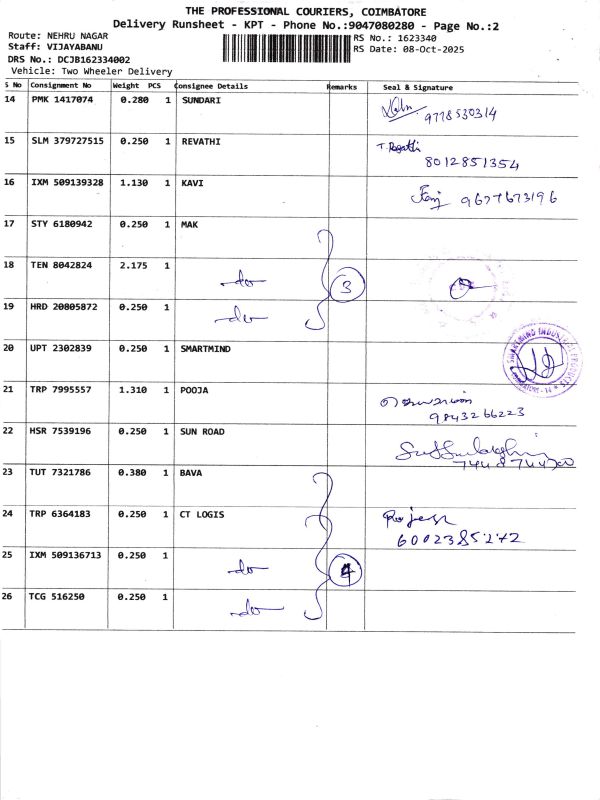 THE PROFESSIONAL COURIERS, COIMBATORE
Delivery Runsheet - KPT - Phone No.:9047080280 - Page No.:2
Route: NEHRU NAGAR
RS No.: 1623340
Staff: VIJAYABANU
RS Date: 08-Oct-2025
DRS No.: DCJB162334002
Vehicle: Two Wheeler Delivery
S No Consignment No Weight PCS Consignee Details Remarks Seal & Signature
14 PMK 1417074 0.280 1 SUNDARI
9778530314
15 SLM 379727515 0.250 1 REVATHI
8012851354
16 IXM 509139328 1.130 1 KAVI
9677673196
17 STY 6180942 0.250 1 MAK
18 TEN 8042824 2.175 1 do 3
19 HRD 20805872 0.250 1 do
20 UPT 2302839 0.250 1 SMARTMIND
21 TRP 7995557 1.310 1 POOJA
9843266223
22 HSR 7539196 0.250 1 SUN ROAD
23 TUT 7321786 0.380 1 BAVA
24 TRP 6364183 0.250 1 CT LOGIS Rajesh
6002385272
25 IXM 509136713 0.250 1 do 4
26 TCG 516250 0.250 1 do